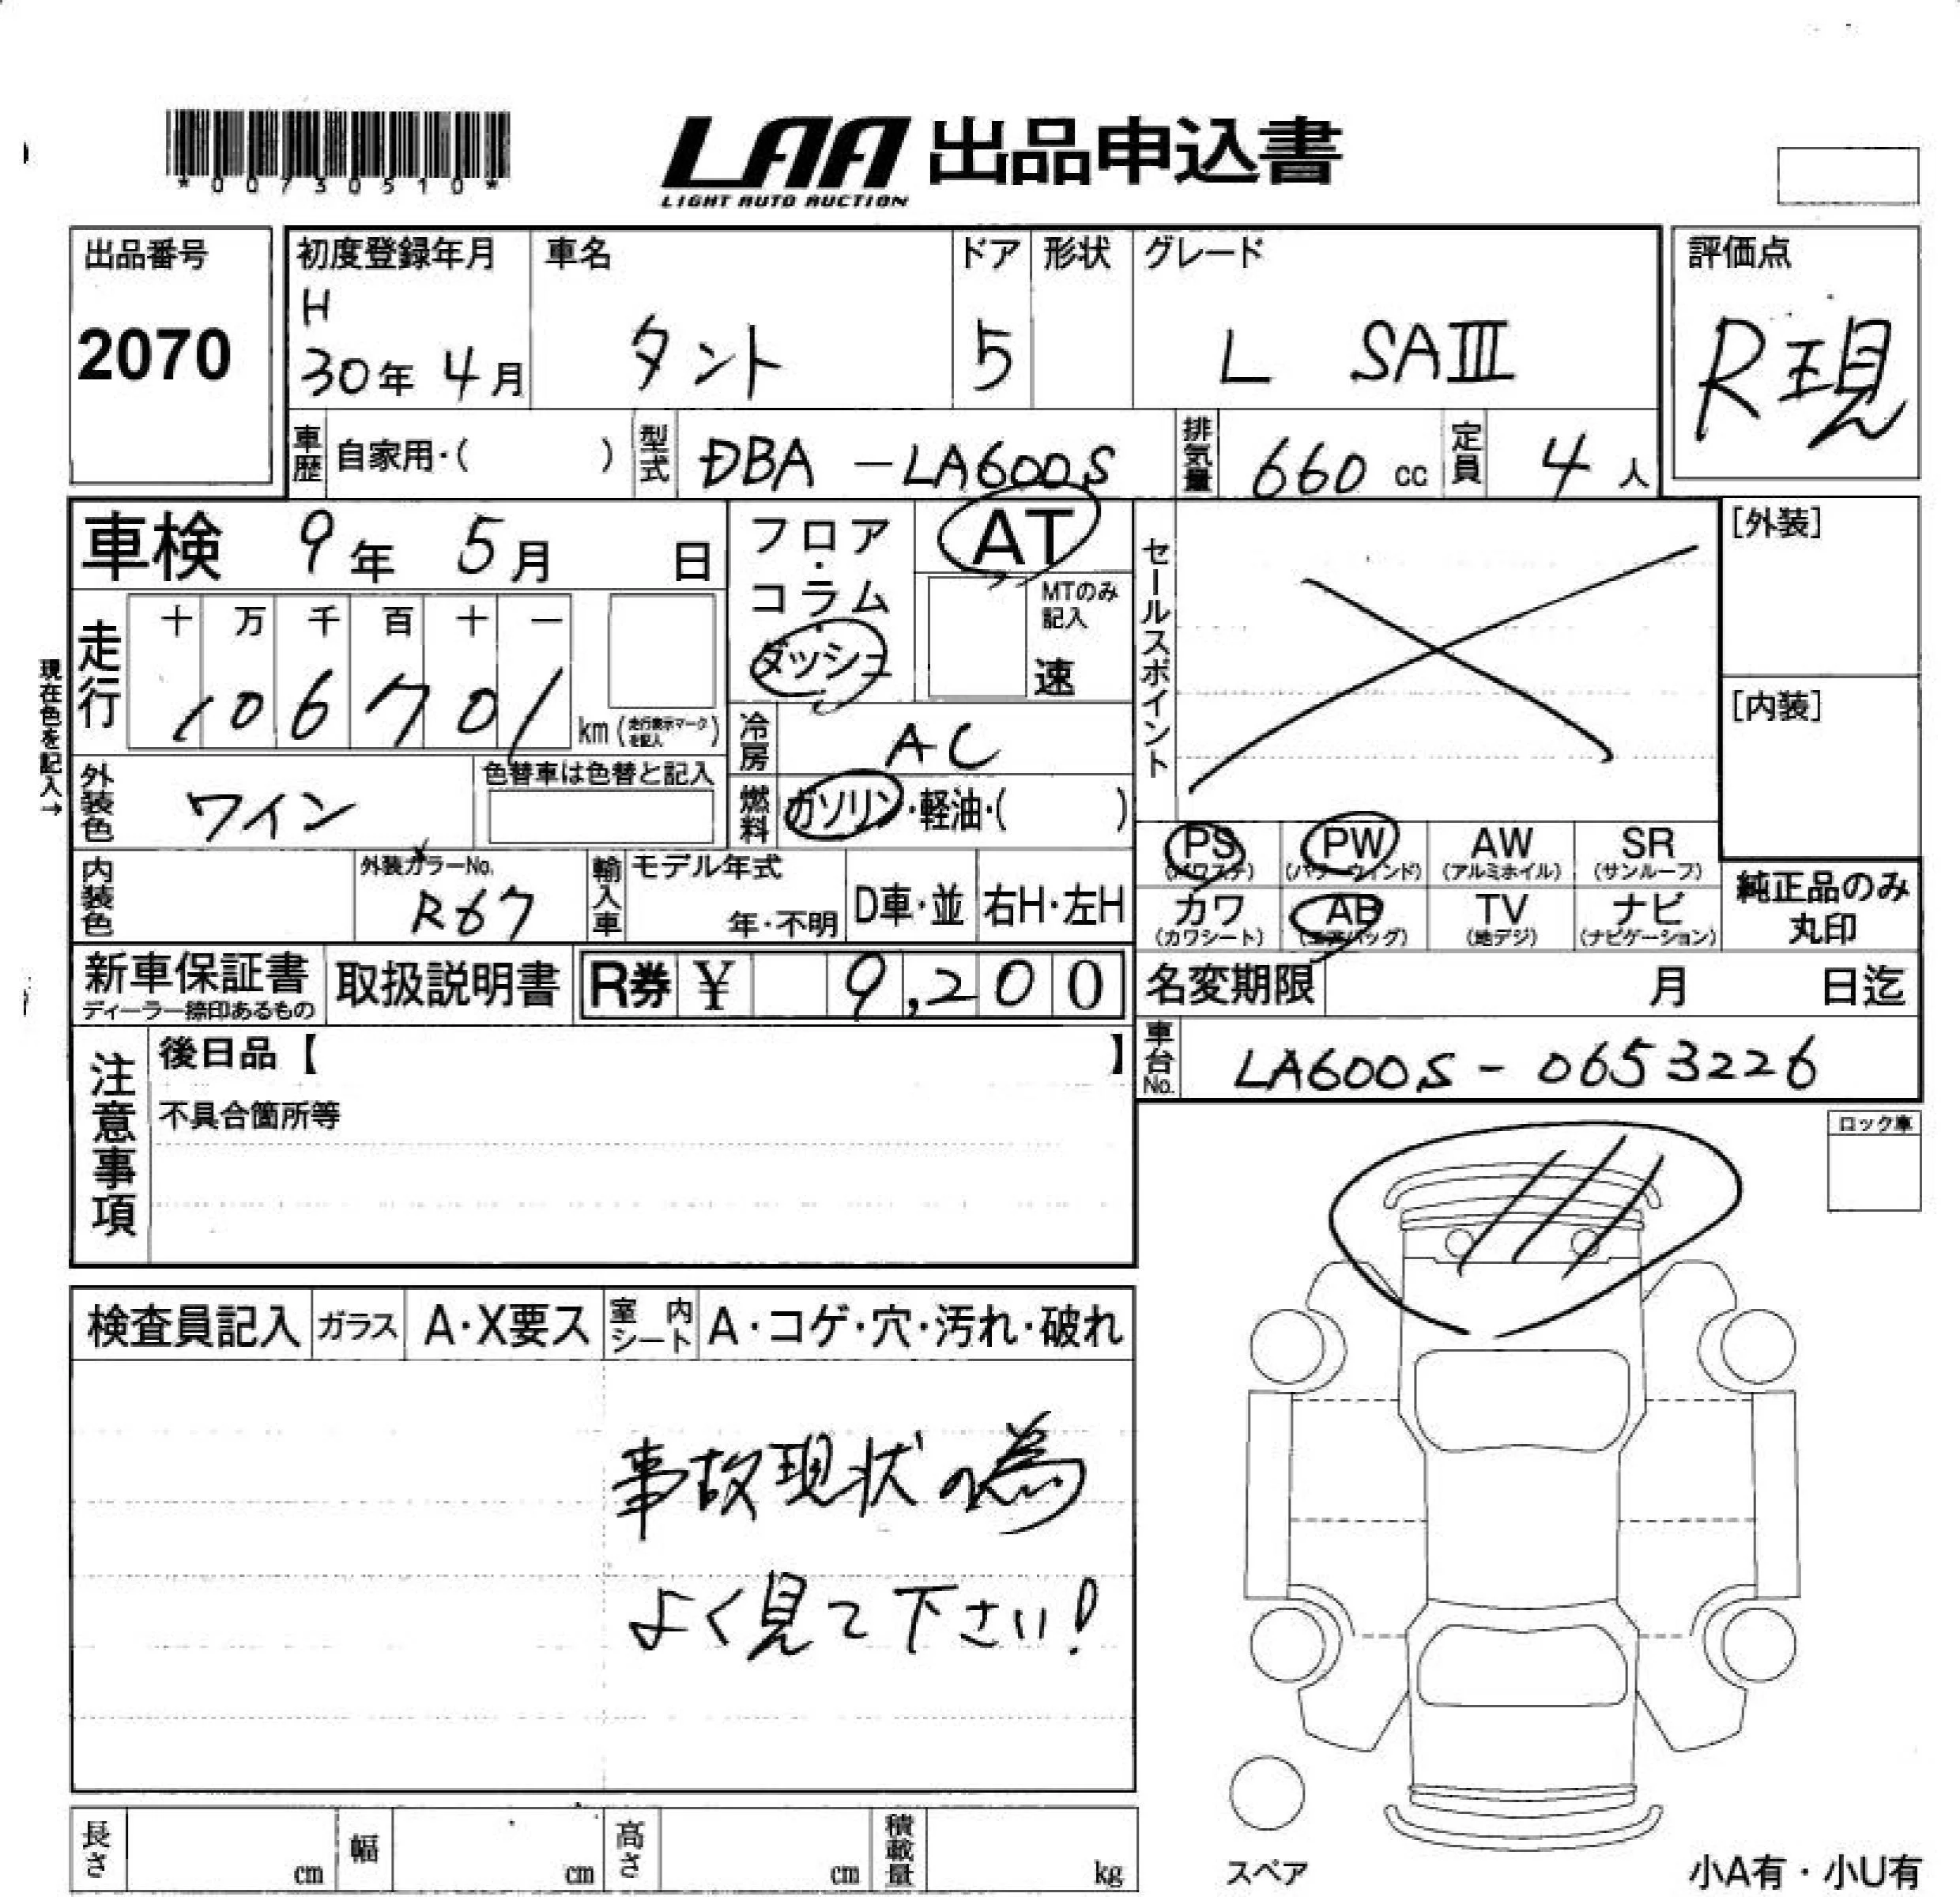 *00730510*
LAA 出品申込書
LIGHT AUTO AUCTION
出品番号
2070
初度登録年月
H
30年 4月
車名
タント
ドア
5
形状
グレード
L SAIII
評価点
R現
車歴 自家用・( )
型式 DBA -LA600S
排気量 660 cc
定員 4 人
車検 9年 5月 日
フロア・コラム・ダッシュ
AT
MTのみ記入
速
セールスポイント
[外装]
[内装]
現在色を記入→
走行
十 万 千 百 十 一
1 0 6 7 0 1
km (走行表示マークを記入)
冷房 AC
外装色 ワイン
色替車は色替と記入
燃料 ガソリン・軽油・( )
PS (パワステ)
PW (パワーウィンド)
AW (アルミホイル)
SR (サンルーフ)
カワ (カワシート)
AB (エアバッグ)
TV (地デジ)
ナビ (ナビゲーション)
純正品のみ
丸印
内装色
外装カラーNo.
R67
輸入車
モデル年式
年・不明
D車・並
右H・左H
新車保証書
ディーラー捺印あるもの
取扱説明書
R券 ¥ 9,200
名変期限 月 日迄
車台No. LA600S - 0653226
注意事項
後日品【 】
不具合箇所等
ロック車
検査員記入
ガラス A・X要ス
室内シート A・コゲ・穴・汚れ・破れ
事故現状の為
よく見て下さい!
長さ cm
幅 cm
高さ cm
積載量 kg
スペア
小A有・小U有